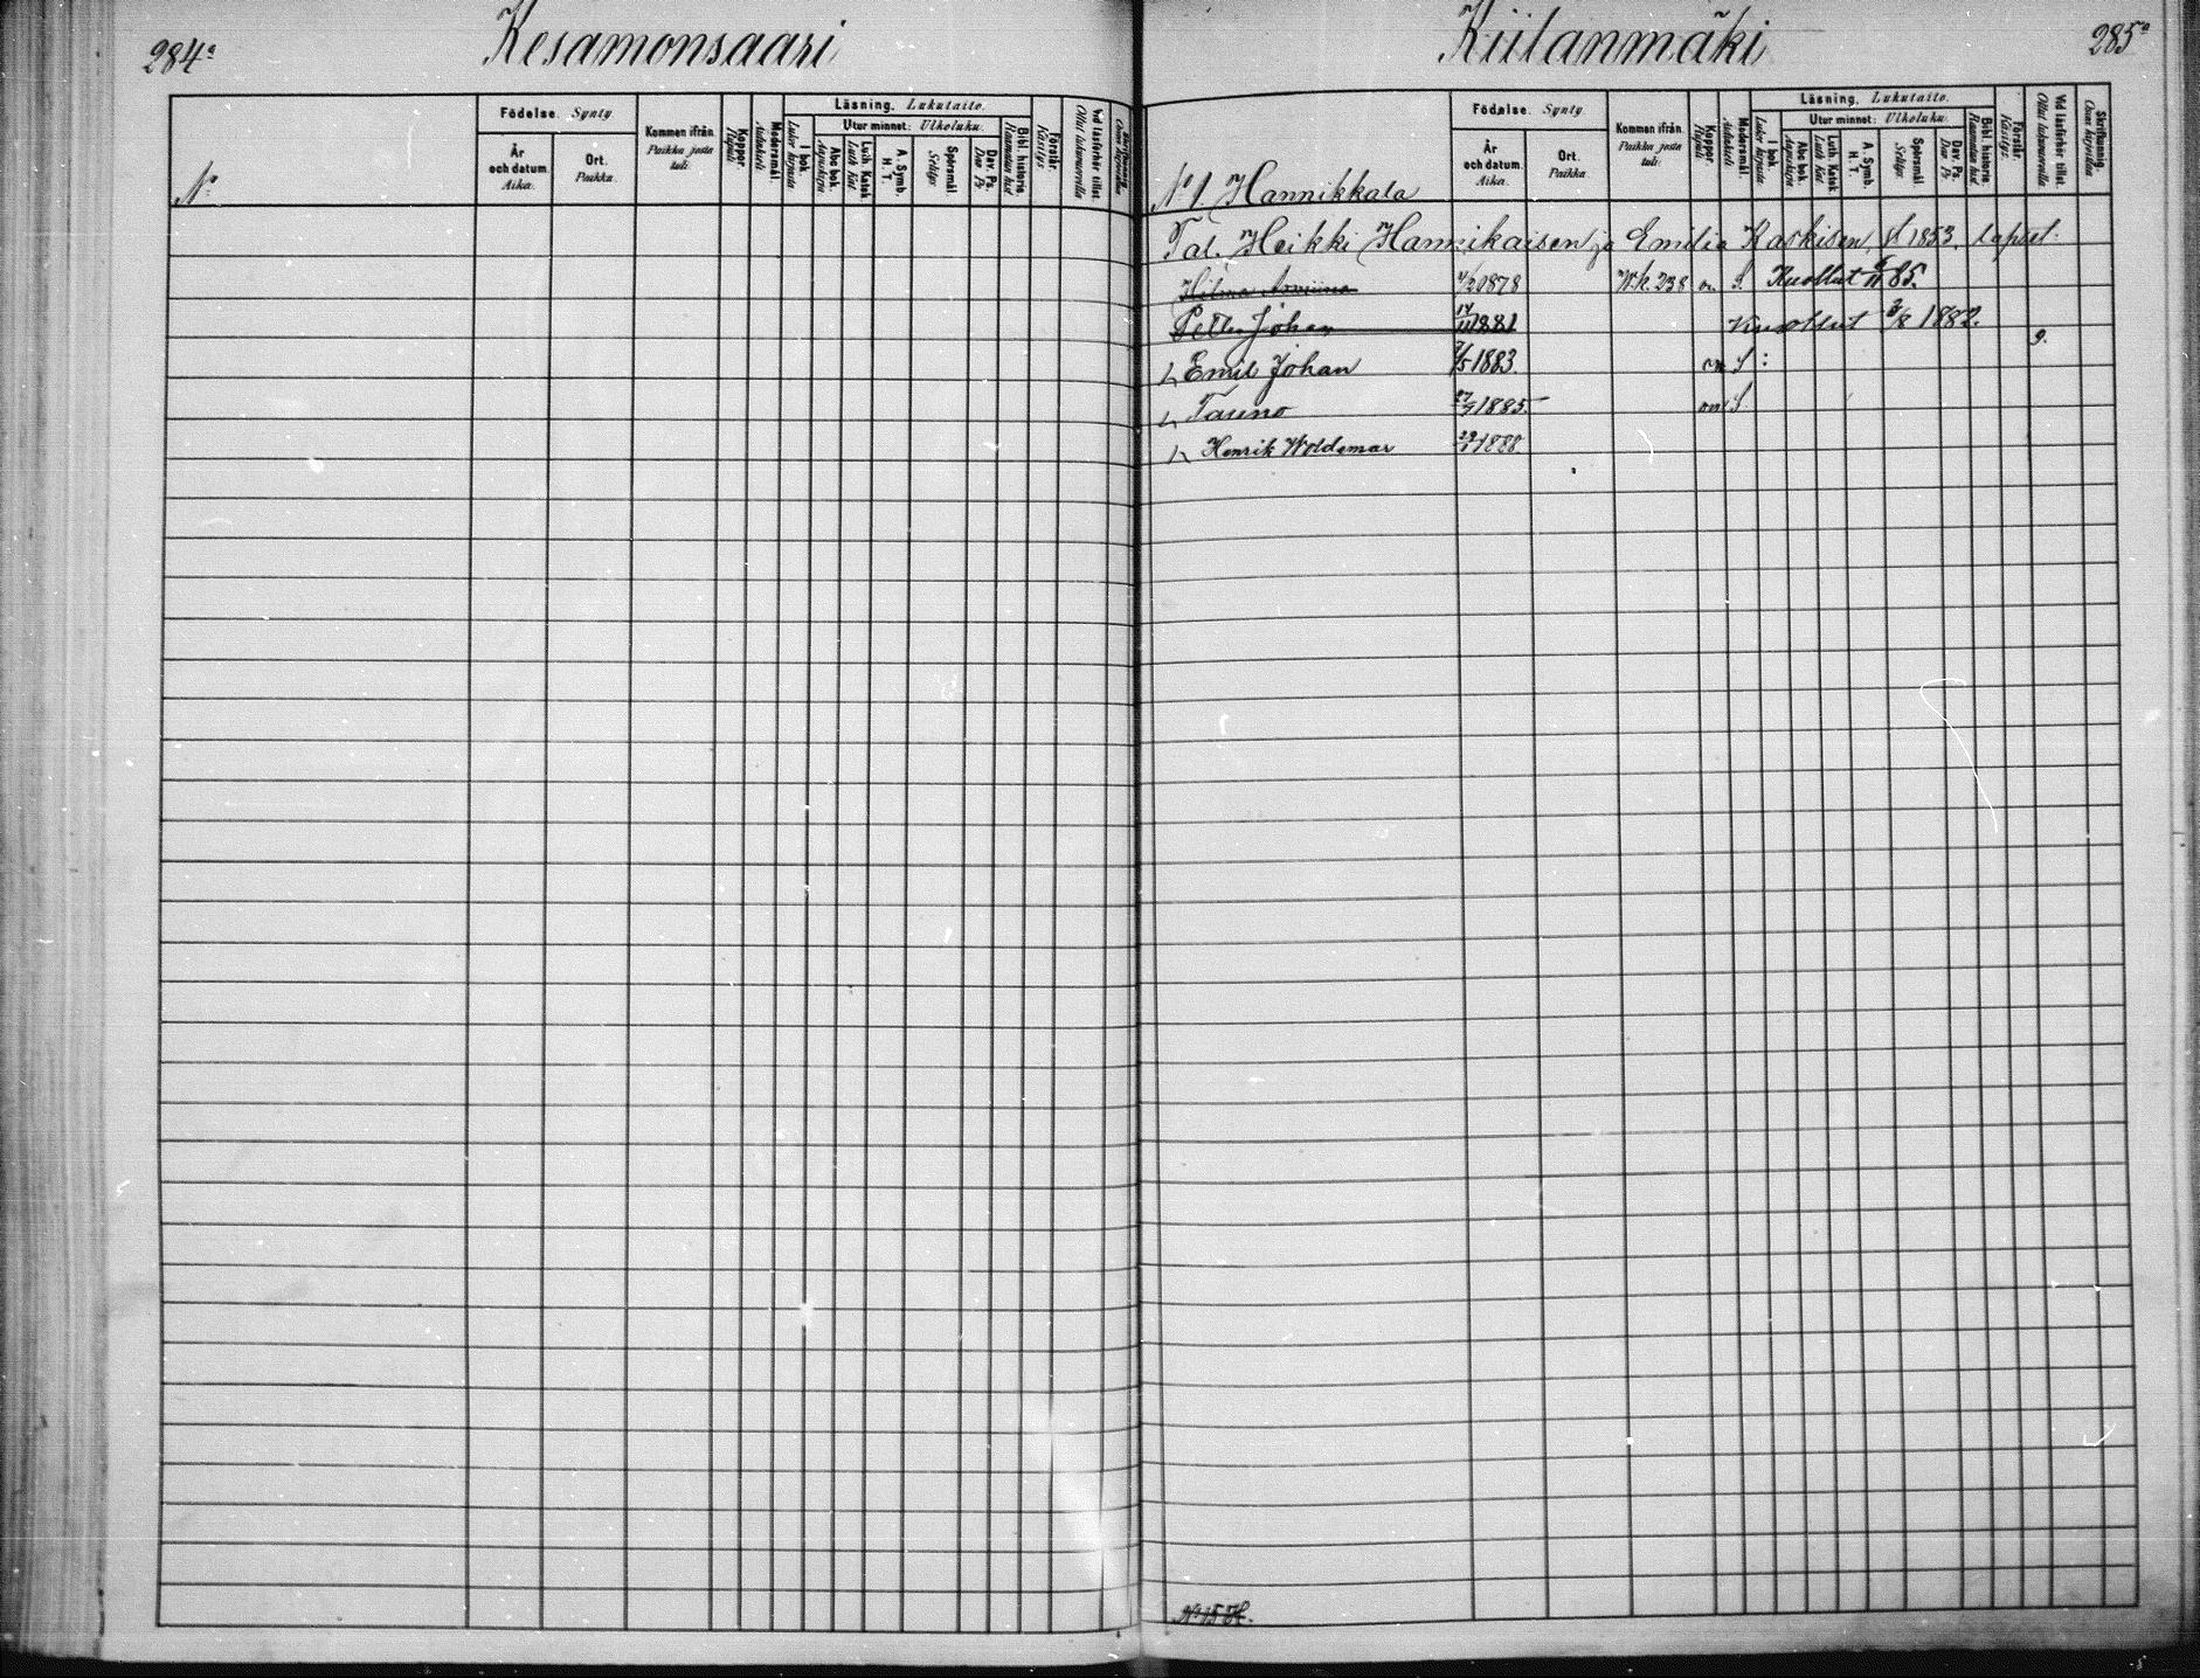 284ᵃ
Kesamonsaari
Nº
Födelse. Synty.
År och datum. Aika.
Ort. Paikka.
Kommen ifrån. Paikka josta tuli:
Koppor. Rupuli
Modersmål. Äidinkieli
Läsning. Lukutaito.
I bok. Lukee kirjasta
Utur minnet: Ulkoluku.
Abc bok. Aapiskirja
Luth. Katek. Luth. Kat.
A. Symb. H. T.
Spörsmål. Selitys.
Dav. Ps. Dav. Ps.
Bibl. historie. Raamatun hist.
Förstår. Käsitys.
Vid läsförhör tillst. Ollut lukuvuorolla
Skriftkunnig. Osaa kirjoittaa
Kiilanmäki
285ᵃ
Nº 1. Hannikkala
Födelse. Synty
År och datum. Aika.
Ort. Paikka
Kommen ifrån. Paikka josta tuli:
Koppor. Rupuli
Modersmål. Äidinkieli
Läsning. Lukutaito.
I bok. Lukee kirjasta
Utur minnet: Ulkoluku.
Abc bok. Aapiskirja
Luth. Katek. Luth. Kat.
A. Symb. H. T.
Spörsmål. Selitys
Dav. Ps. Dav. Ps.
Bibl. historie. Raamatun hist.
Förstår. Käsitys.
Vid läsförhör tillst. Ollut lukuvuorolla
Skriftkunnig. Osaa kirjoittaa
Tal. Heikki Hannikaisen ja Emilia Kaskisen, 1853. lapset.
Hilma 1878 W.k. 238 on S. Kuollut 85.
Petter Johan 1881 Kuollut 3/8 1882.
9.
Emil Johan /5 1883. on S :
Tauno 1885. on S
Henrik Woldemar 1888
Nº 15